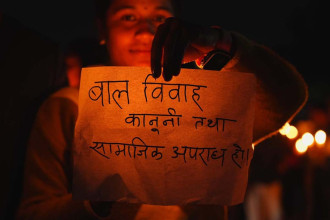 बाल विवाह
कानुनी तथा
सामाजिक अपराध हो।